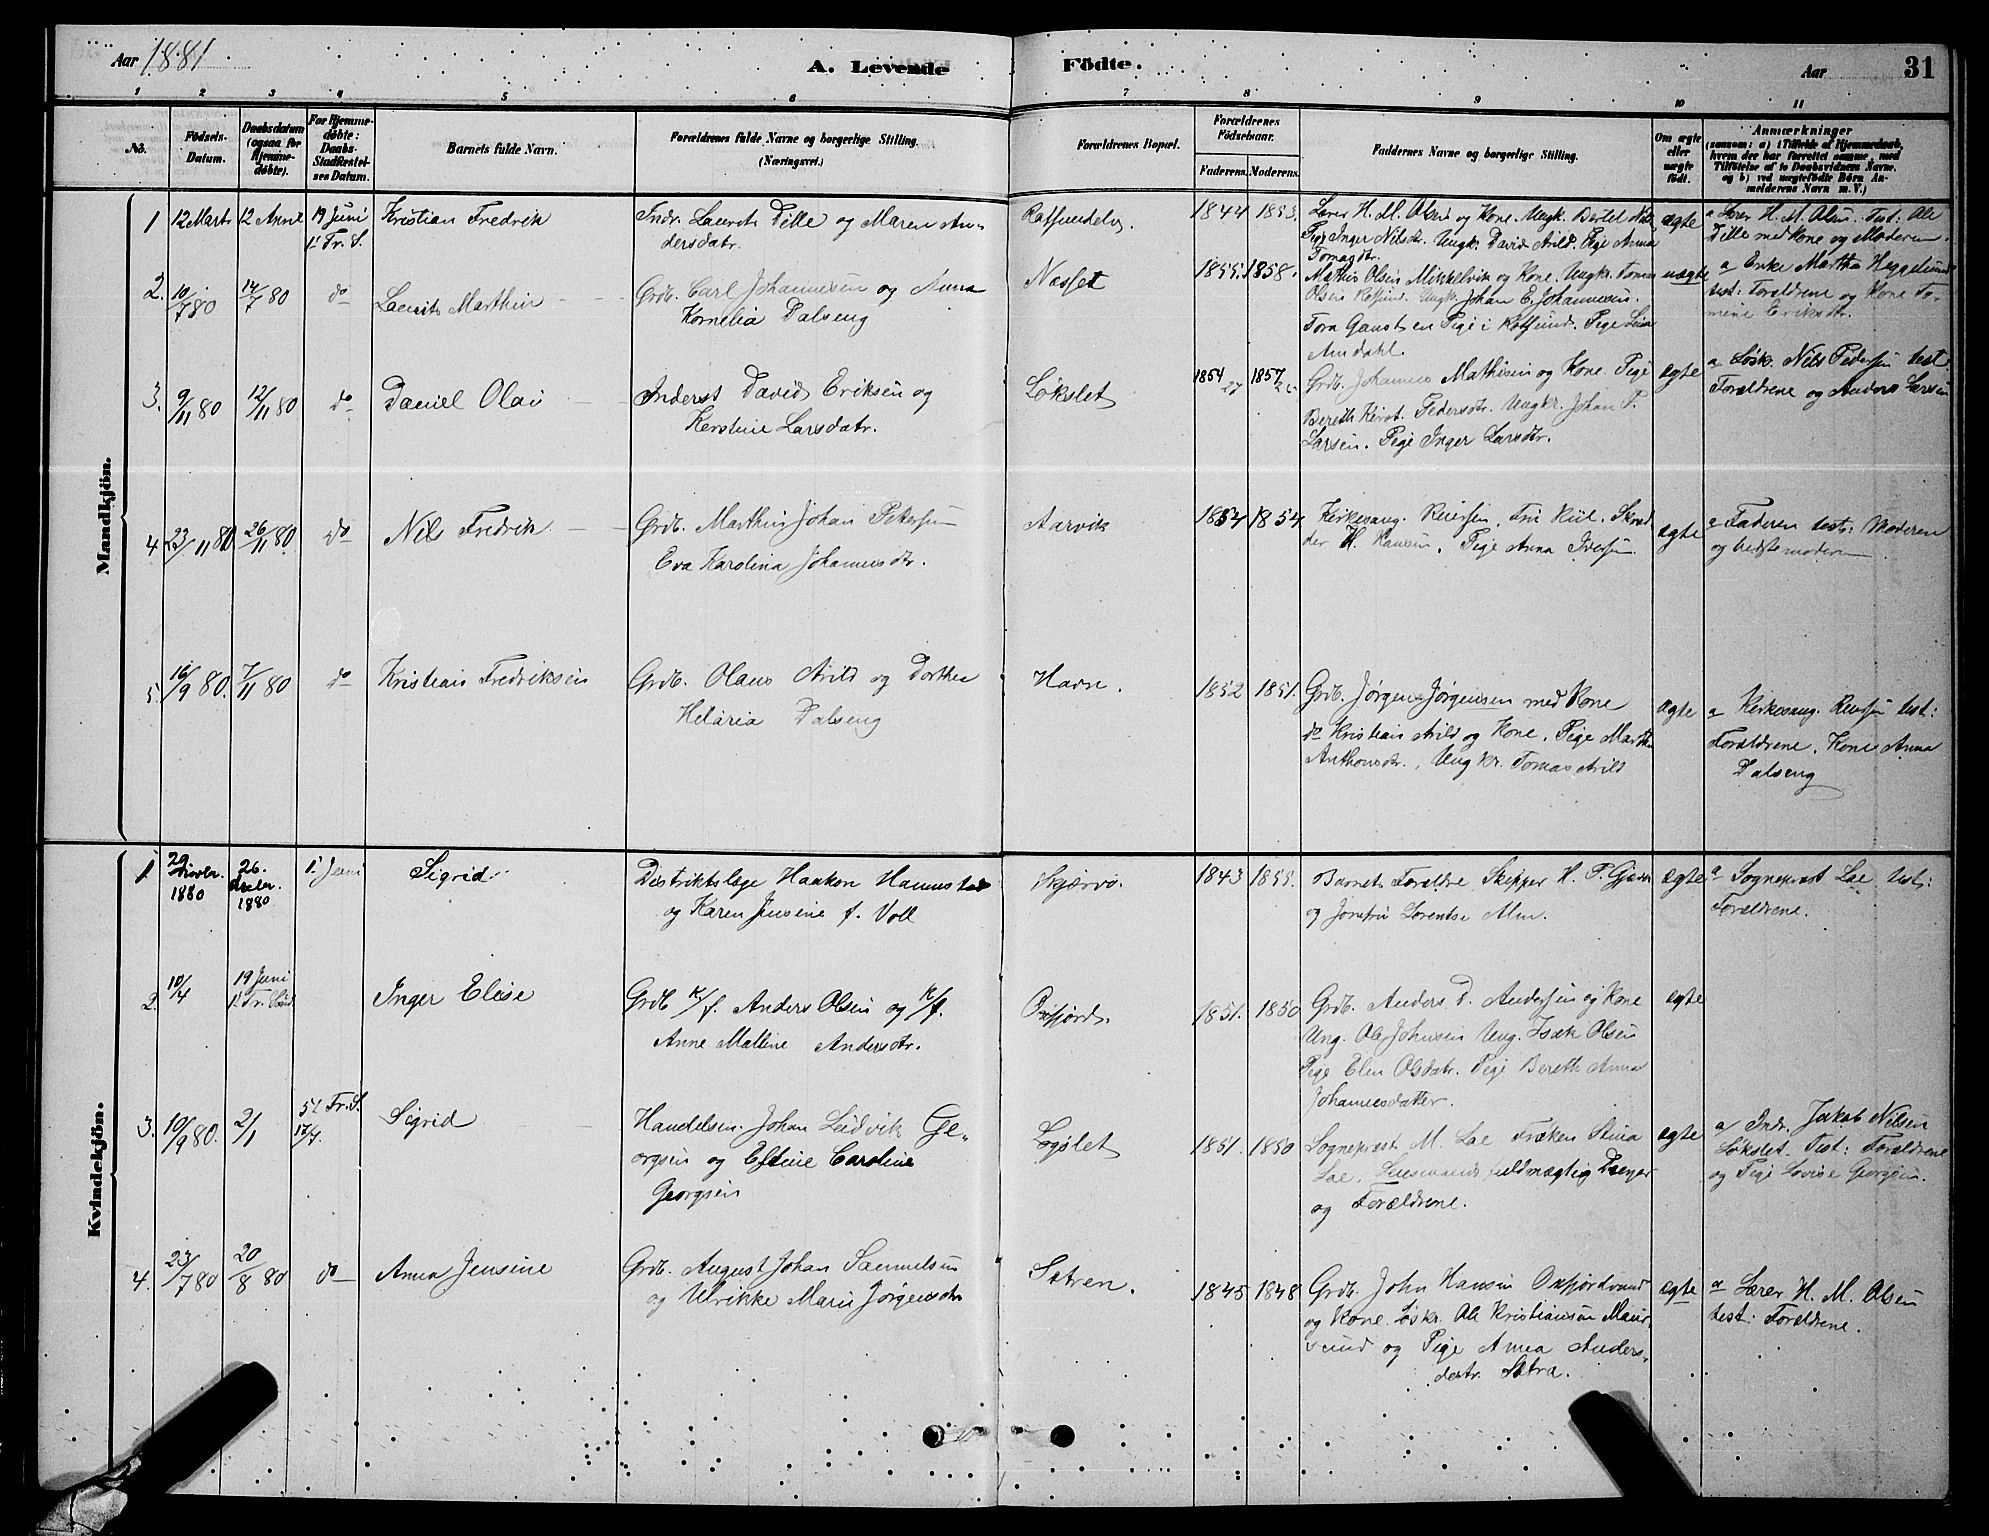 Aar 1881
A. Levende Födte.
Aar
31
1 2 3 4 5 6 7 8 9 10 11
No.
Födsels-
Datum.
Daabsdatum
(ogsaa for
Hjemme-
döbte).
For Hjemme-
döbte:
Daabs-
Stadfæstel-
ses Datum.
Barnets fulde Navn.
Forældrenes fulde Navne og borgerlige Stilling.
(Næringsvei.)
Forældrenes Bopæl.
Forældrenes
Födselsaar.
Faderens. Moderens.
Faddernes Navne og borgerlige Stilling.
Om ægte
eller
uægte
födt.
Anmærkninger
(saasom: a) i Tilfælde af Hjemmedaab,
hvem der har forrettet samme, med
Tilföielse af to Daabsvidners Navne,
og b) ved uægtefödte Börn An-
melderens Navn m. V.)
Mandkjön.
1 12 Marts 12 Anne 19 Juni
1' Tr. S.
Kristian Fredrik
Indr. Laurits Dille og Maren An-
dersdatr.
Rotsundelv.
1844 1853.
Lærer H. M. Olsen og Kone. Ungk. Bertel Nils
Pige Inger Nilsdtr. Ungkr. David Arild. Pige Anna
Tomasdtr.
ægte
a Lærer H. M. Olsen. Test: Ole
Dille med Kone og Moderen.
2. 10/7 80 14/7 80 do
Laurits Marthin
Grdb. Carl Johannesen og Anna
Kornelia Dalseng
Næsset
1855. 1858.
Mathis Olsen Mikkelvik og Kone. Ungk. Tomas
Olsen Rotsund. Ungk. Johan E. Johannesen.
Tora Ganst en Pige i Rotsund. Pige Lina
Amdahl.
uægte
a Enke Martha Heggelund
test: Forældrene og Kone To-
mine Eriksdtr.
3. 9/11 80 12/11 80 do
Daniel Olai
Inderst David Eriksen og
Kerstine Larsdatr.
Lökslet
1854 27 1857
Grdb. Johannes Mathisen og Kone. Pige
Bereth Kirst. Pedersdtr. Ungkr. Johan P.
Larsen. Pige Inger Larsdtr.
ægte
a Løsk. Nils Pedersen test.
Forældrene og Anders Larsen
4 23/11 80 26/11 80 do
Nils Fredrik
Grdb. Marthin Johan Petersen
Eva Karolina Johannesdtr.
Aarvik
1854 1854
Kirkesang. Reiersen, Fru Kiil. Skræd
der H. Hansen, Pige Anna Iversen
ægte
a Faderen test: Moderen
og bedstemoderen
5. 16/9 80. 7/11 80 do
Kristian Fredriksen
Grdb. Olaus Arild og Dorthea
Helaria Dalseng
Havn.
1852 1851.
Grdb. Jörgen Jörgensen med Kone
do Kristian Arild og Kone, Pige Martha
Anthonsdtr., Ungkr. Tomas Arild
ægte
a Kirkesang. Reiersen test:
Forældrene, Kone Anna
Dalseng
Kvindekjön.
1 29 Novbr.
1880
26.
Decbr.
1880
1' Juni
Sigrid
Distriktslæge Haakon Hannestad
og Karen Jensine f. Voll
Skjærvö.
1843 1855.
Barnets Forældre Skipper H. P. Gjæver
og Jomfru Lorentse Alm.
ægte
a Sogneprest Lae test:
Forældrene.
2. 10/4 19 Juni
1' Tr. Sönd
Inger Elise
Grdb K/f. Anders Olsen og K/f.
Anne Malline Andersdtr.
Oxfjord.
1851. 1850
Grdb. Anders D. Andersen og Kone
Ung. Ole Johnsen Ung. Isak Olsen
Pige Elen Olsdatr. Pige Bereth Anna
Johannesdatter.
ægte
3. 10/9 80. 2/1 5t Tr. S.
17/7.
Sigrid
Handelsm. Johan Ludvik Ge-
orgsen og Eftine Caroline
Georgsen
Løgslet
1851. 1850
Sogneprest M. Lae Frøken Stina
Lae. Lensmands fuldmægtig Dreyer
og Forældrene.
ægte
a Indr. Jakob Nilsen
Lökslet. Test: Forældrene
og Pige Lovise Georgsen.
4. 23/7 80 20/8 80 do
Anna Jensine
Grdb. August Johan Samuelsen
og Ulrikke Marie Jörgensdtr
Sætren.
1845 1848
Grdb. John Hansen Oxfjordsund
og Kone. Løskr. Ole Kristiansen Maur-
sund og Pige Anna Anders-
destr. Sætra.
ægte
a Lærer H. M. Olsen
test: Forældrene.